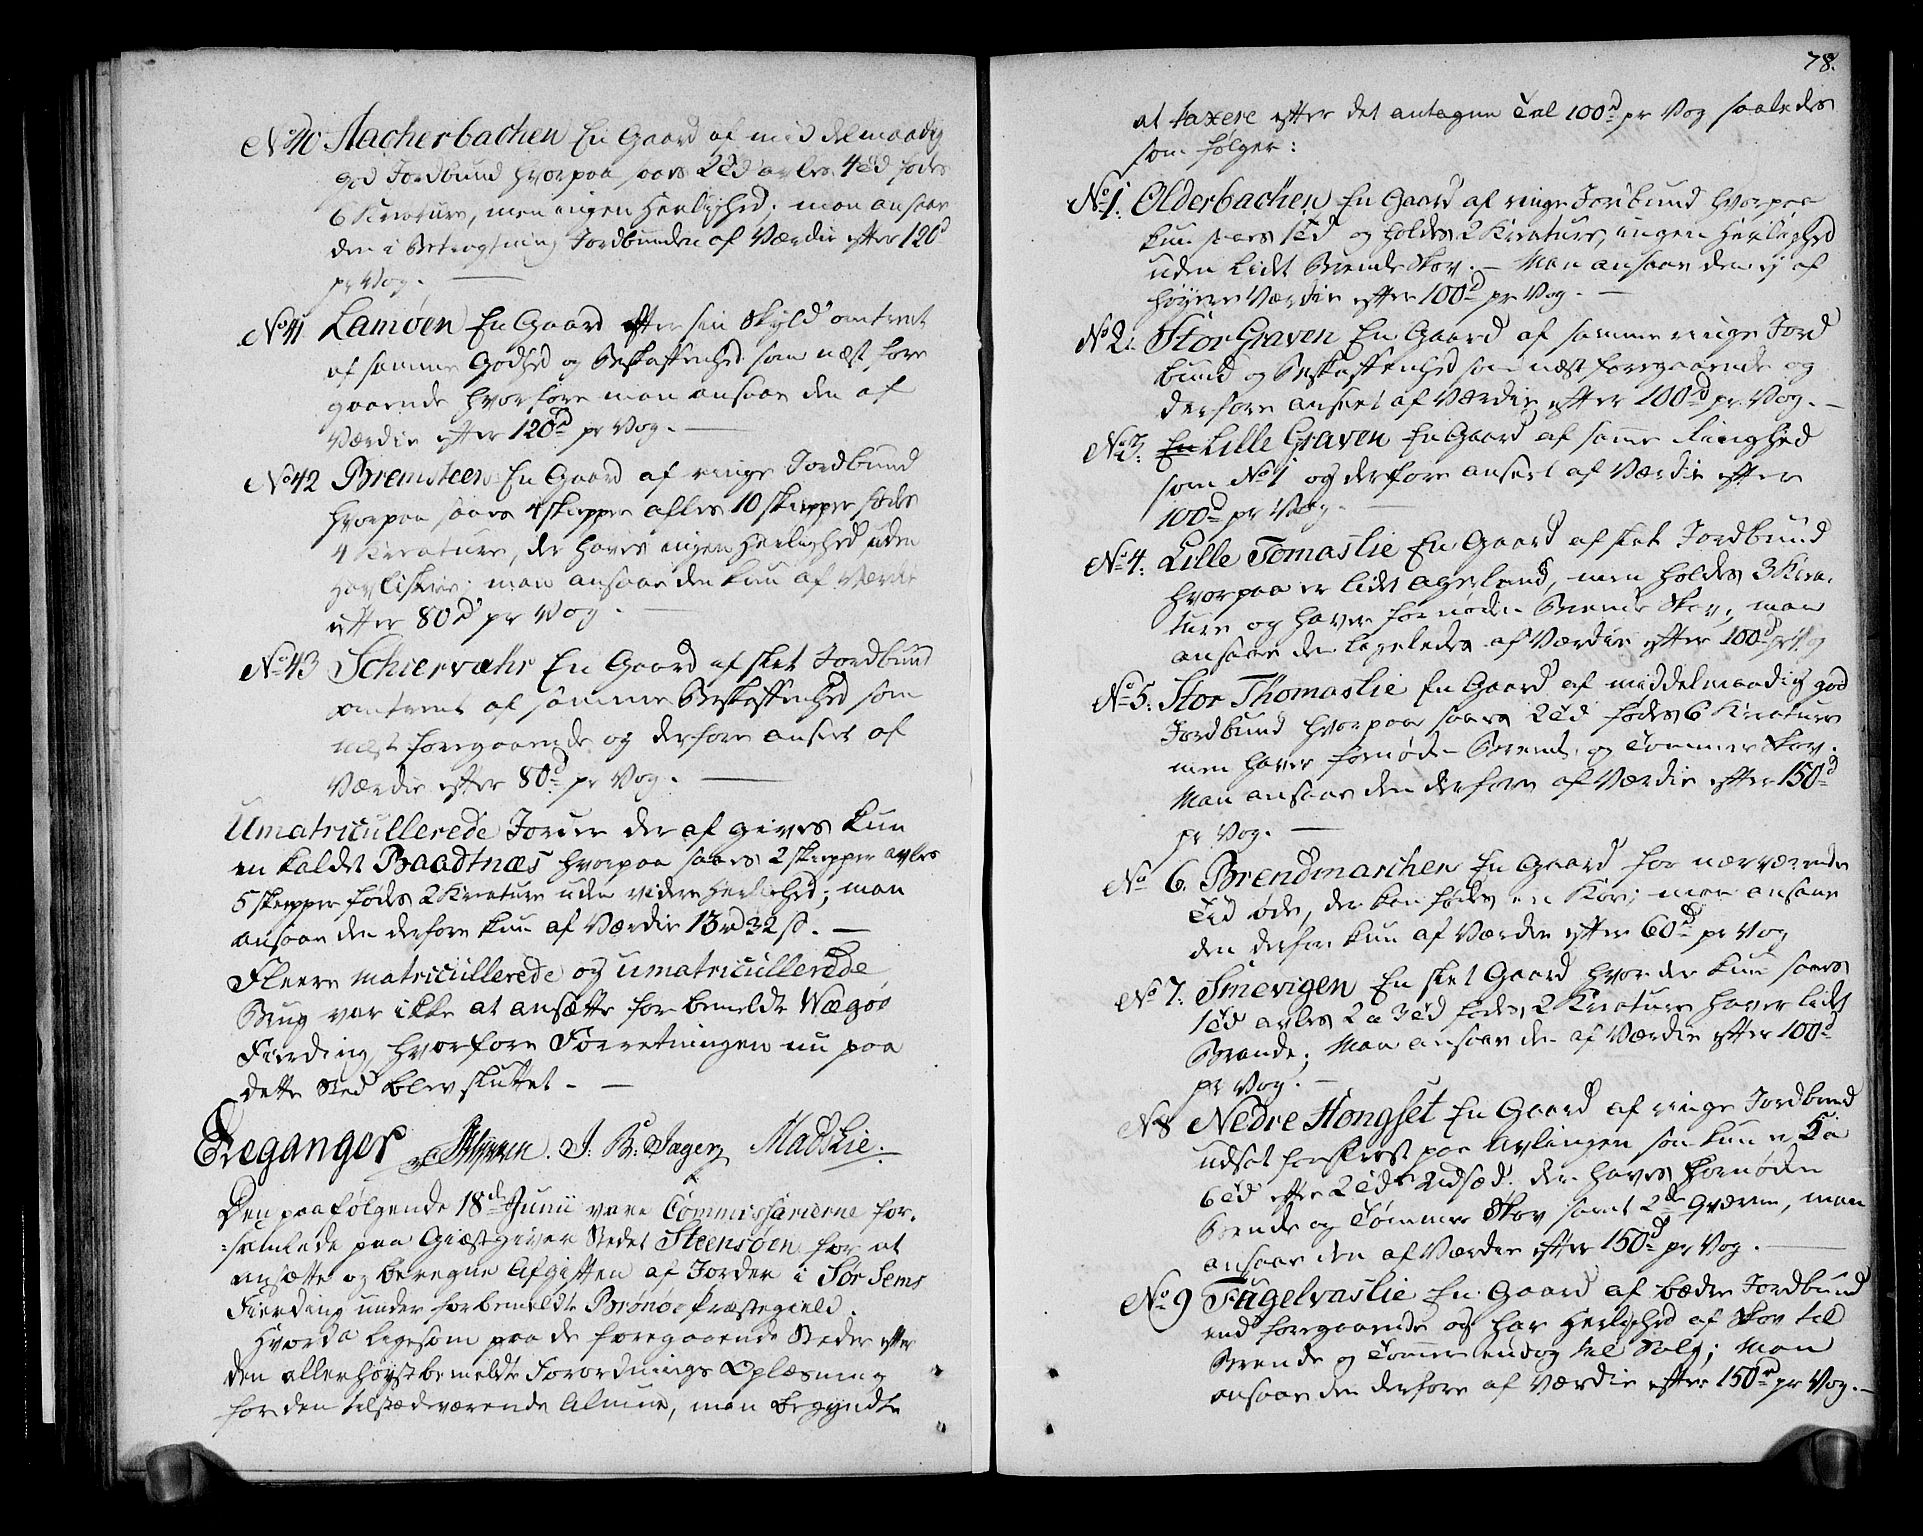 No 40 Aacherbachen En Gaard af middelmaadig
god Jordbund hvorpaa saaes 2 Td avles 4 Td fødes
6 Kreature, men ingen Herlighed; man ansaae
den i Betragtning Jordbunden af Værdie efter 120 d
pr Vog. —
No 41 Lamøen En Gaard efter sin Skyld omtrent
af samme Godhed og Beskaffenhed som næst fore
gaaende hvorfore man ansaae den af
Værdie efter 120 d pr Vog. —
No 42 Bremsteen En Gaard af ringe Jordbund
hvorpaa saaes 4 skiepper afles 10 skiepper fødes
4 Kreature, der haves ingen Herlighed uden
Havfiskerie; man ansaae den kun af Værdie
efter 80 d pr Vog. —
No 43 Schiervæhr En Gaard af slet Jordbund
omtrent af samme Beskaffenhed som
næst foregaaende og derfore anseet af
Værdie efter 80 d pr Vog. —
Umatricullerede Jorder der af gives kun
en kaldet Baadtnæs hvorpaa saaes 2 skiepper avles
5 skiepper fødes 2 Kreature uden videre Herlighed; man
ansaae den derfore kun af Værdie 13 rd 32 s. —
Fleere matricullerede og umatricullerede
Brug var ikke at ansætte for bemeldte Wægøe
Fierding, hvorfore Forretningen nu paa
dette Sted blev sluttet. —
Ereganger J. B. Jæger Mads Lie.
Den paafølgende 18de Junii vare Commissairerne for-
samlede paa Giæstgiver Stedet Steensøen for at
ansætte og beregne Afgiften af Jorder i Sør Sems
Fierding under forbemeldte Brønøe Præstegield.
Hvorda ligesom paa de foregaaende Steder efter
den allerhøystbemeldte Forordnings Oplæsning
for den tilstædeværende Almue, man begyndte
78.
at taxere efter det antagne Tal 100 d pr Vog saaledes
som følger:
No 1. Olderbachen En Gaard af ringe Jordbund hvorpaa
kun saaes 1 Td og holdes 2 Kreature, ingen Herlighed
uden Lidt Brende Skov. — Man ansaae den ej af
høyere Værdie efter 100 d pr Vog. —
No 2. Stor Graven En Gaard af samme ringe Jord
bund og Beskaffenhed som næst foregaaende og
derfore anseet af Værdie efter 100 d pr. Vog. —
No 3. En Lille Graven En Gaard af samme Ringhed
som No 1 og derfore anseet af Værdie efter
100 d pr Vog. —
No 4. Lille Tomaslie En Gaard af slet Jordbund
hvorpaa er lidet agerland, men holdes 3 Krea-
ture og haver fornøden Brende Skov, man
ansaae den ligeledes af Værdie efter 100 d pr Vog
No 5. Stor Thomaslie En Gaard af middelmaadig god
Jordbund hvorpaa saaes 2 Td fødes 6 Kreature
men haver fornøden Brende og Tommer Skov.
Man ansaae den derfore af Værdie efter 150 d
pr Vog. —
No 6. Brendmarchen En Gaard for nærværende
Tid øde, der kan fødes en Koe; man ansaae
den derfor kun af Værdie efter 60 d pr Vog
No 7. Smevigen En slet Gaard hvor der kun saaes
1 Td avles 2 a 3 Td fødes 2 Kreature haver lidt
Brende; Man ansaae den af Værdie efter 100 d
pr Vog. —
No 8 Nedre Hongset En Gaard af ringe Jordbund
udsat for frost paa Avlingen, som kun er 5 a
6 Td efter 2 Td Udsæd. der haves fornøden
Brende og Tømmer Skov samt 2de Qværne, man
ansaae den af Værdie efter 150 d pr Vog. —
No 9 Fugelvaslie En Gaard af bædre Jordbund
end foregaaende og har Herlighed af Skov til
Brende og Tømmer endog til Salg; Man
ansaae den derfore af Værdie efter 150 d pr Vog. —